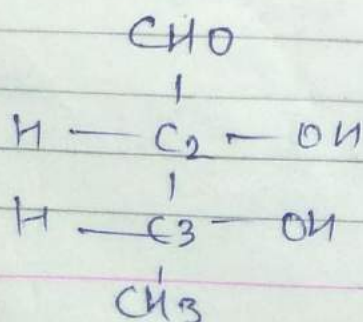 CHO
H — C2 — OH
H — C3 — OH
CH3